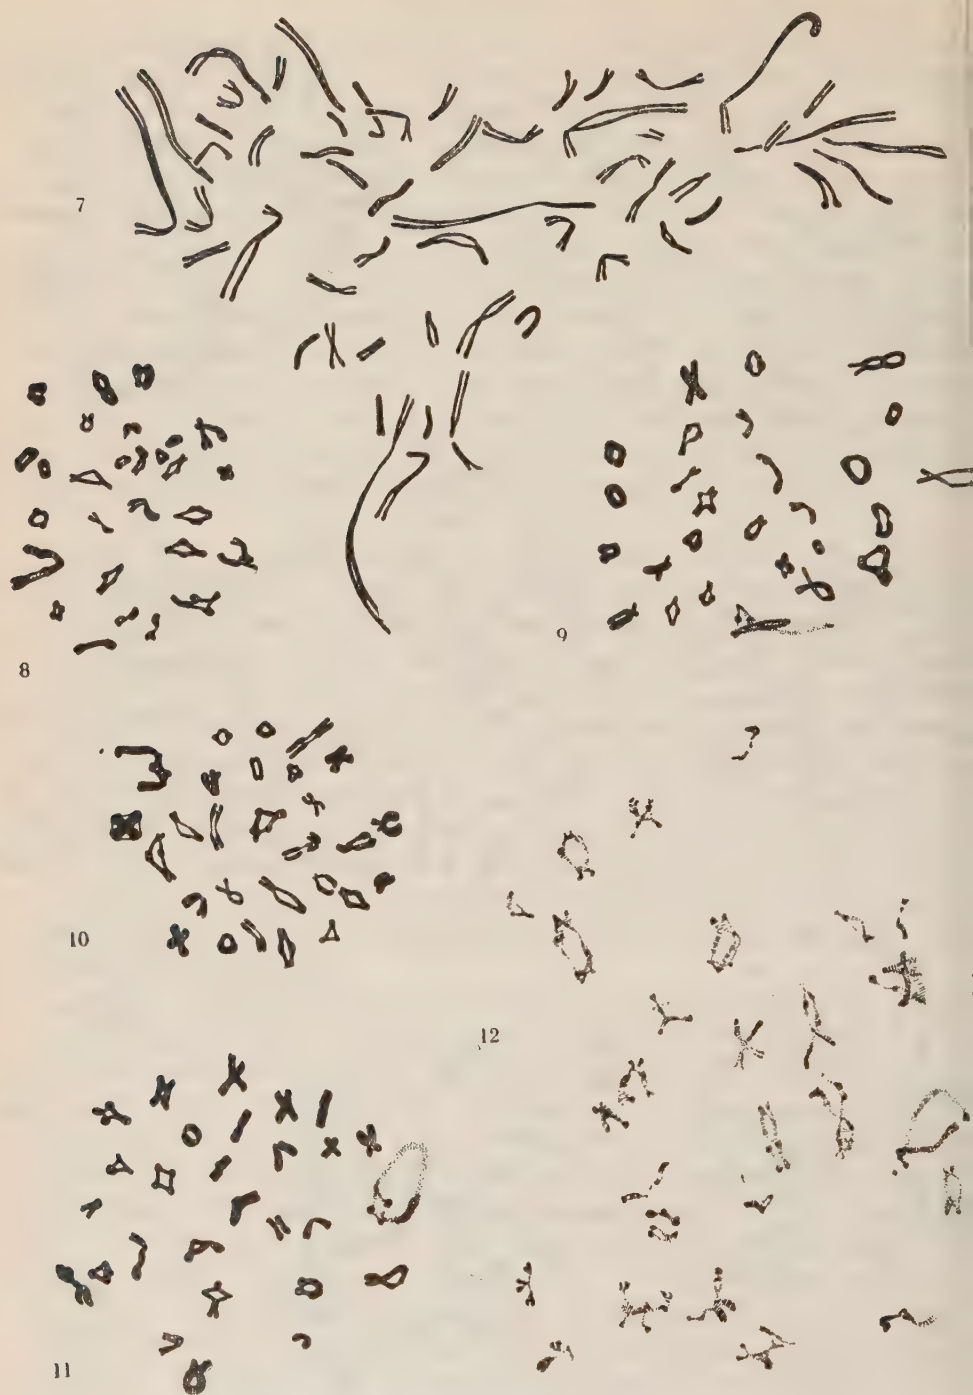 7
8
9
10
12
11